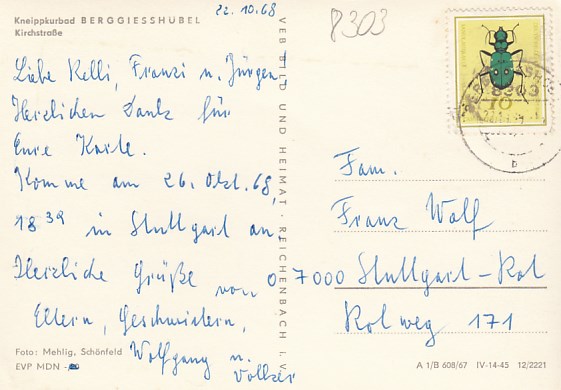 Kneippkurbad BERGGIESSHÜBEL
Kirchstraße
22.10.68
8303
Liebe Kelli, Franzi u. Jürgen
Herzlichen Dank für
Eure Karte.
Komme am 26. Okt. 68,
18 39 in Stuttgart an.
Herzliche Grüße von
Eltern, Geschwistern,
Wolfgang u.
Volker
Foto: Mehlig, Schönfeld
EVP MDN
VEB BILD UND HEIMAT · REICHENBACH I. V.
8303
10
b
Fam.
Franz Wolf
7000 Stuttgart-Rot
Rotweg 171
A 1/B 608/67 IV-14-45 12/2221